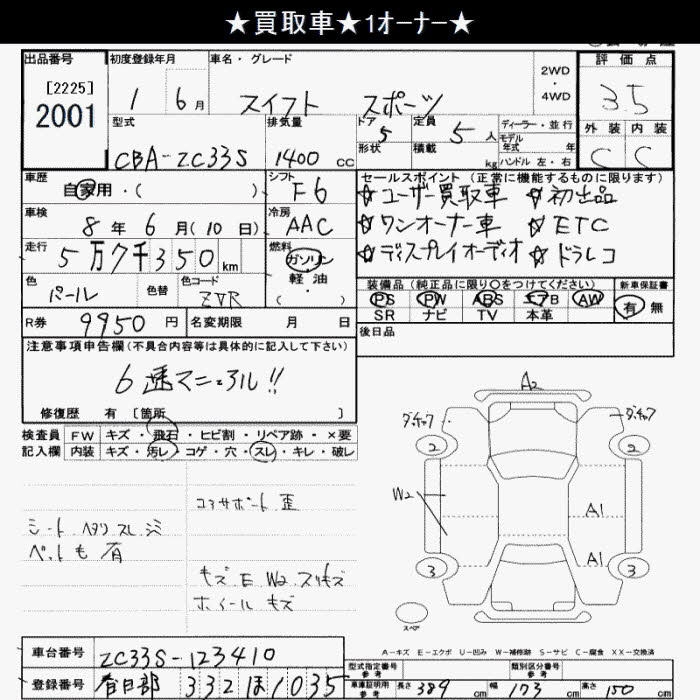 ★買取車★1ｵｰﾅｰ★
出品番号
[2225]
2001
初度登録年月
1 6月
車名・グレード
スイフト スポーツ
2WD
・
4WD
評価点
3.5
外装 内装
C C
型式
CBA-ZC33S
排気量
1400 CC
ドア
5
形状
定員
5人
積載
kg
ディーラー・並行
モデル
年式 年
ハンドル 左・右
車歴
自家用・( )
シフト
F6
車検
8年 6月(10日)
冷房
AAC
走行
5万7千350km
燃料
ガソリン
軽・油
( )
色
パール
色替
色コード
ZVR
R券 9950円
名変期限 月 日
セールスポイント(正常に機能するものに限ります)
☆ユーザー買取車 ☆初出品
☆ワンオーナー車 ☆ETC
☆ディスプレイオーディオ ☆ドラレコ
装備品(純正品に限り○をつけてください)
PS PW ABS エアB AW
SR ナビ TV 本革
新車保証書
有 無
後日品
注意事項申告欄(不具合内容等は具体的に記入して下さい)
6速マニュアル!!
修復歴 有 [箇所 ]
検査員 FW キズ・飛石・ヒビ割・リペア跡・×要
記入欄 内装 キズ・汚レ・コゲ・穴・スレ・キレ・破レ
コアサポート 歪
シート ヘタリ スレ シミ
ペットも 有
キズ E W2 スリキズ
ホイール キズ
A2
ダ・チャフ ダ・チャフ
2 2
W2
A1
A1
3 3
スペア
A-キズ E-エクボ U-凹み W-補修跡 S-サビ C-腐食 XX-交換済
車台番号 ZC33S-123410
登録番号 春日部 332 ほ 1035
型式指定番号
参考
類別区分番号
参考
車庫証明用
参考
長さ 389 cm 幅 173 cm 高さ 150 cm